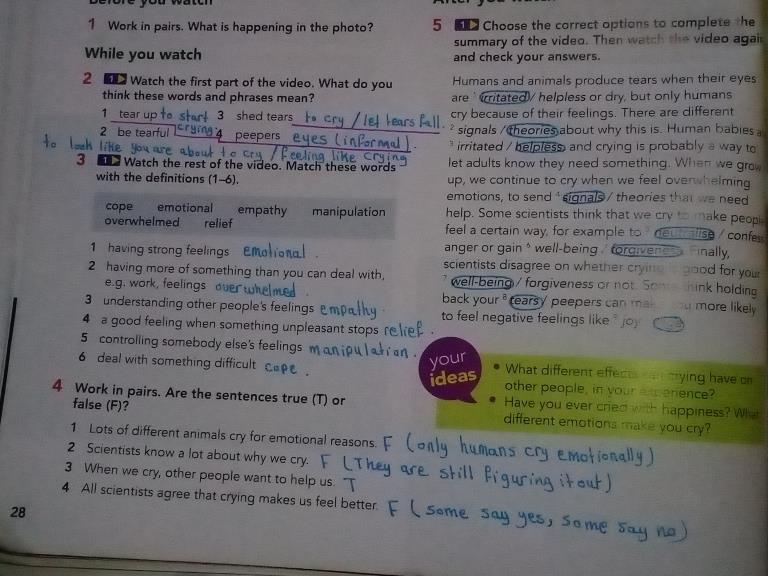 Before you watch
1 Work in pairs. What is happening in the photo?
While you watch
2 1 Watch the first part of the video. What do you
think these words and phrases mean?
1 tear up to start crying 3 shed tears to cry / let tears fall.
2 be tearful 4 peepers eyes (informal).
to look like you are about to cry / feeling like crying
3 1 Watch the rest of the video. Match these words
with the definitions (1–6).
cope emotional empathy manipulation
overwhelmed relief
1 having strong feelings emotional.
2 having more of something than you can deal with,
e.g. work, feelings overwhelmed.
3 understanding other people's feelings empathy.
4 a good feeling when something unpleasant stops relief.
5 controlling somebody else's feelings manipulation.
6 deal with something difficult cope.
4 Work in pairs. Are the sentences true (T) or
false (F)?
1 Lots of different animals cry for emotional reasons. F (only humans cry emotionally)
2 Scientists know a lot about why we cry. F (They are still figuring it out)
3 When we cry, other people want to help us. T
4 All scientists agree that crying makes us feel better. F (some say yes, some say no)
28
5 1 Choose the correct options to complete the
summary of the video. Then watch the video again
and check your answers.
Humans and animals produce tears when their eyes
are 1 irritated / helpless or dry, but only humans
cry because of their feelings. There are different
2 signals / theories about why this is. Human babies a
3 irritated / helpless and crying is probably a way to
let adults know they need something. When we grow
up, we continue to cry when we feel overwhelming
emotions, to send 4 signals / theories that we need
help. Some scientists think that we cry to make people
feel a certain way, for example to 5 neutralise / confess
anger or gain 6 well-being / forgiveness. Finally,
scientists disagree on whether crying is good for your
7 well-being / forgiveness or not. Some think holding
back your 8 tears / peepers can make you more likely
to feel negative feelings like 9 joy
your
ideas
• What different effects can crying have on
other people, in your experience?
• Have you ever cried with happiness? What
different emotions make you cry?